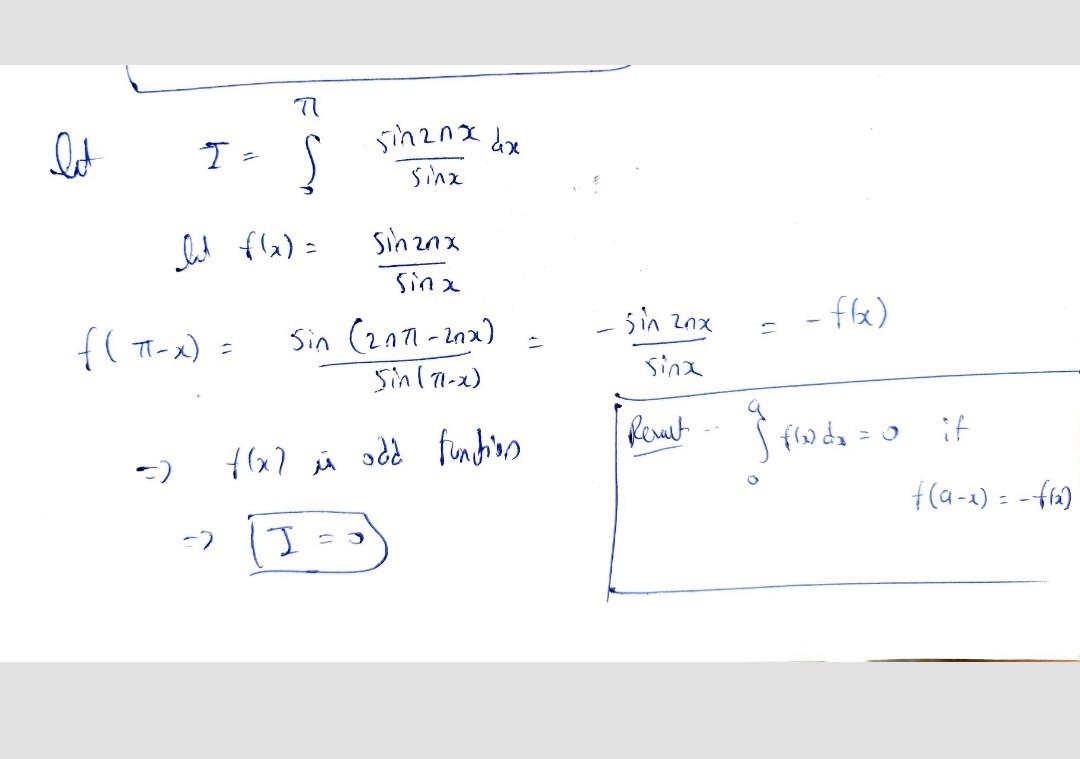 let I = ∫₀^π sin2nx/sinx dx
let f(x) = sin2nx/sinx
f(π-x) = sin(2nπ-2nx)/sin(π-x) = -sin2nx/sinx = -f(x)
⇒ f(x) is odd function
⇒ I = 0
Result -- ∫₀^a f(x) dx = 0 if
f(a-x) = -f(x)